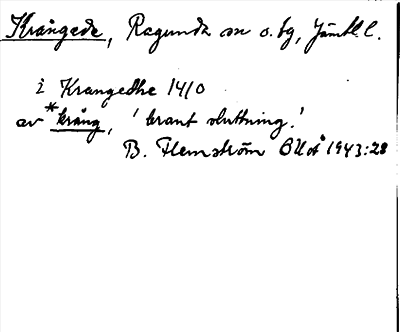 Krångede, Ragunda sn o. bg, Jämtl. l.
i Krangedhe 1410
av *krång, 'brant sluttning.'
B. Flemström BUoÅ 1943:28